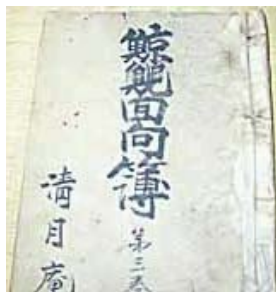 鯨鯢囬向簿
第三巻
清月庵